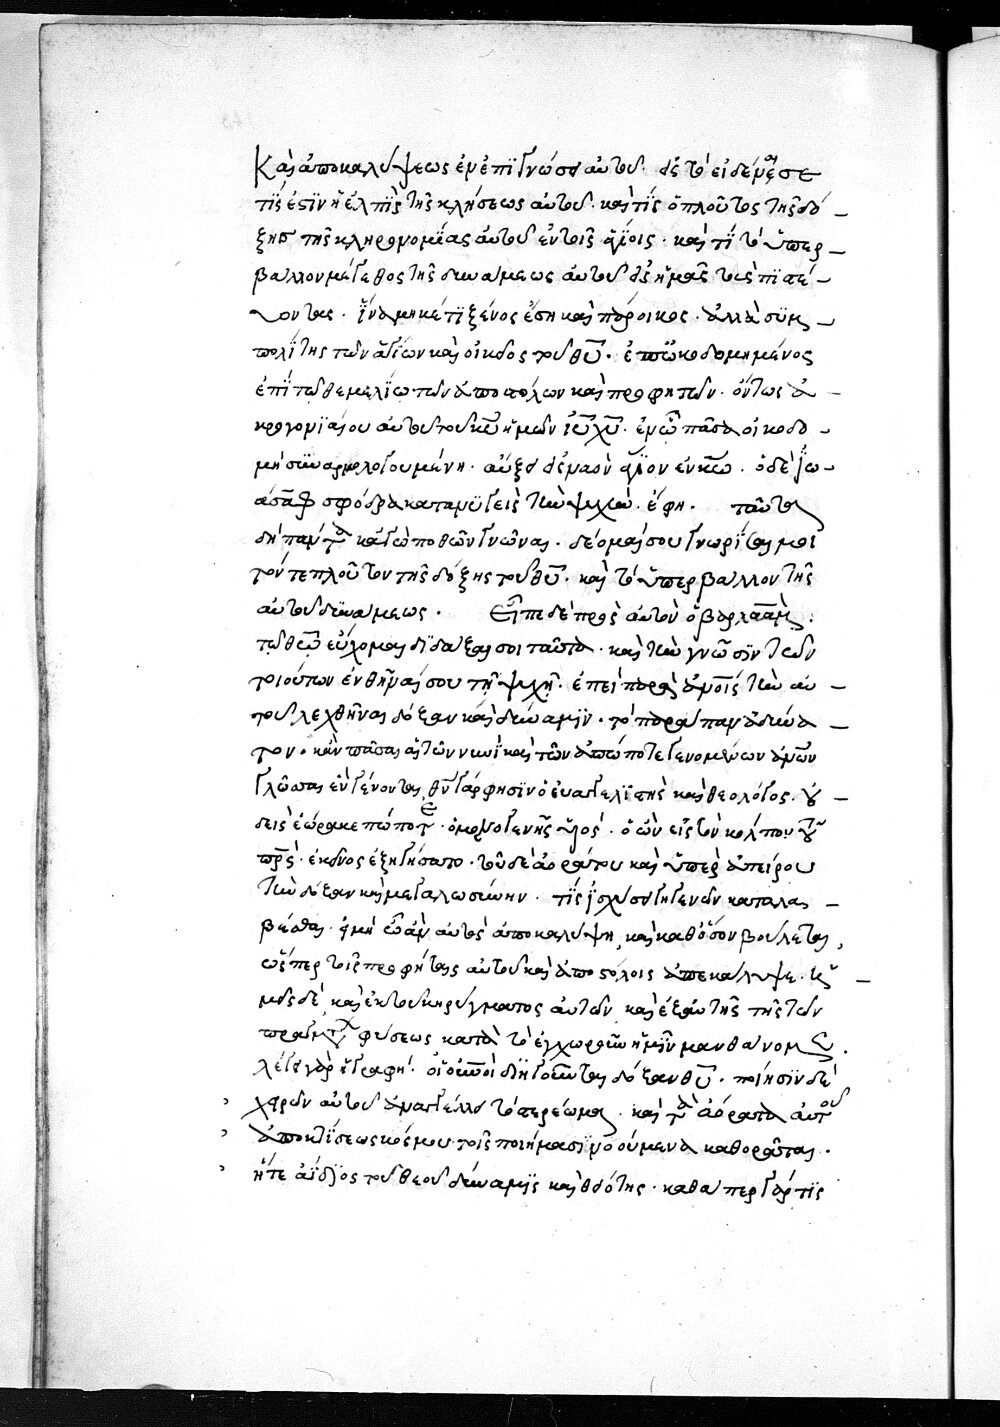 Καὶ ἀποκαλύψεως ἐν ἐπϊγνώσει αὐτοῦ· εἰς τὸ εἰδέναι σε
τίς ἐστϊν ἡ ἐλπὶς τῆς κλήσεως αὐτοῦ· καὶ τίς ὁ πλοῦτος τῆς δό
ξης τῆς κληρονομΐας αὐτοῦ ἐν τοῖς ἁγΐοις· καὶ τΐ τὸ ὑπερ
βάλλον μέγεθος τῆς δυνάμεως αὐτοῦ εἰς ἡμᾶς τοὺς πϊστεύ
οντας· ἵνα μηκέτϊ ξένος ἔση καὶ πάροικος· ἀλλὰ συμ
πολΐτης τῶν ἁγΐων καὶ οἰκεῖος τοῦ θῦ· ἐπωκοδομημένος
ἐπῒ τῶ θεμελΐω τῶν ἀποστόλων καὶ προφητῶν· ὄντως ἀ
κρογωνϊαίου αὐτοῦ τοῦ κῦ ἡμῶν ἰῦ χῦ· ἐν ὧ πᾶσα οἰκοδο
μὴ συναρμολογουμένη· αὔξει εἰς ναὸν ἅγϊον ἐν κω· ὁ δὲ ἰω
άσαφ σφόδρα κατανϋγεὶς τὴν ψυχὴν ἔφη· ταῦτα
δὴ πάντα κἀγὼ ποθῶν γνῶναι· δέομαί σου γνωρΐσαι μοι
τόν τε πλοῦτον τῆς δόξης τοῦ θῦ· καὶ τὸ ὑπερβάλλον τῆς
αὐτοῦ δυνάμεως· Εἶπε δὲ πρὸς αὐτὸν ὁ βαρλαὰμ·
τῶ θεῶ εὔχομαι δϊδάξαι σοι ταῦτα· καὶ τὴν γνῶσϊν τῶν
τοιούτων ἐνθεῖναί σου τῆ ψυχῆ· ἐπεὶ παρὰ ἀνοις τὴν αὐ
τοῦ λεχθῆναι δόξαν καὶ δύναμϊν· τὸ παράπαν ἀδύνα
τον· κἂν πᾶσαι αἱ τῶν νυνὶ καὶ τῶν ἀπώποτε γενομένων ἀνων
γλῶσσαι ἓν γένονται θν γάρ φησϊν ὁ εὐαγγελϊστὴς καὶ θεολόγος· οὐ
δεὶς ἑώρακε πώποτε· ὁ μονογενὴς υἱὸς· ὁ ὢν εἰς τὸν κόλπον τοῦ
πρς· ἐκεῖνος ἐξηγήσατο· τοῦ δὲ ἀοράτου καὶ ὑπὲρ ἀπείρου
τὴν δόξαν καὶ μεγαλωσύνην· τίς ἰσχύσει γηγενῶν καταλα
βέσθαι· εἰ μὴ ὧ ἂν αὐτὸς ἀποκαλύψη, καὶ καθόσον βούλεται,
ὥσπερ τοῖς προφήταις αὐτοῦ καὶ ἀποστόλοις ἀπεκάλυψε· ἡ
μεῖς δὲ καὶ ἐκ τοῦ κηρύγματος αὐτῶν, καὶ ἐξ αὐτῆς τῆς τῶν
πραγμάτων φύσεως κατὰ τὸ ἐγχωροῦν ἡμῖν μανθάνομεν·
λέγει γὰρ ἡ γραφή· οἱ οὐνοὶ διηγοῦνται δόξαν θῦ· ποίησϊν δὲ
χειρῶν αὐτοῦ ἀναγγέλλει τὸ στερέωμα· καὶ τὰ ἀόρατα αὐτοῦ
ἀπὸ κτίσεως κόσμου τοῖς ποιήμασϊ νοούμενα καθορᾶται·
ἥτε ἀΐδϊος τοῦ θεοῦ δύναμϊς καὶ θειότης· καθάπερ γάρ τϊς